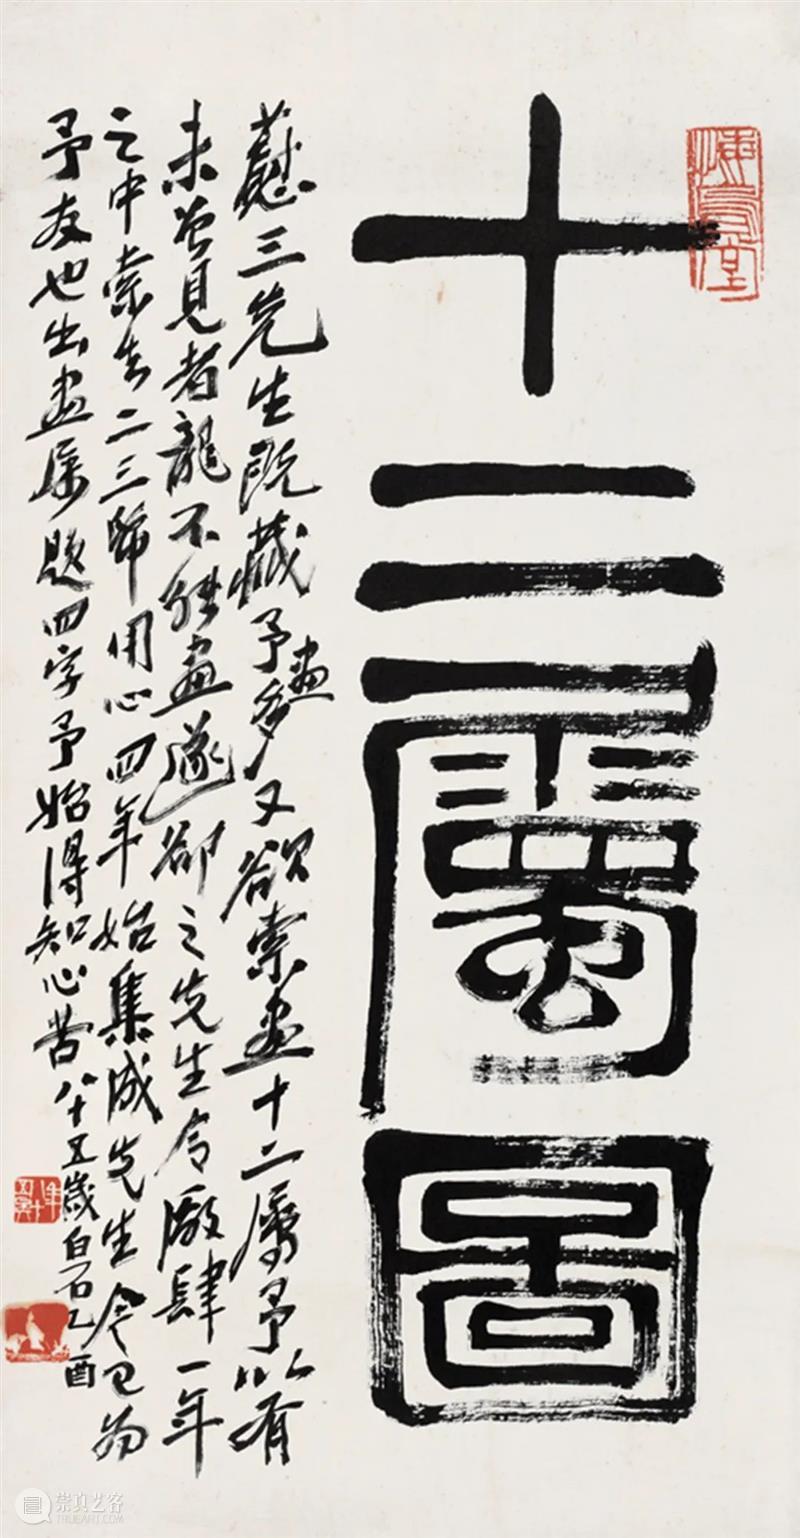 十二属图
慰三先生既藏予画多又欲索画十二属予以有
未曾见者龙不能画遂却之先生令厰肆一年
之中索去二三幅用心四年始集成先生今已为
予友也出画属题四字予始得知心苦八十五岁白石乙酉
崇真艺客